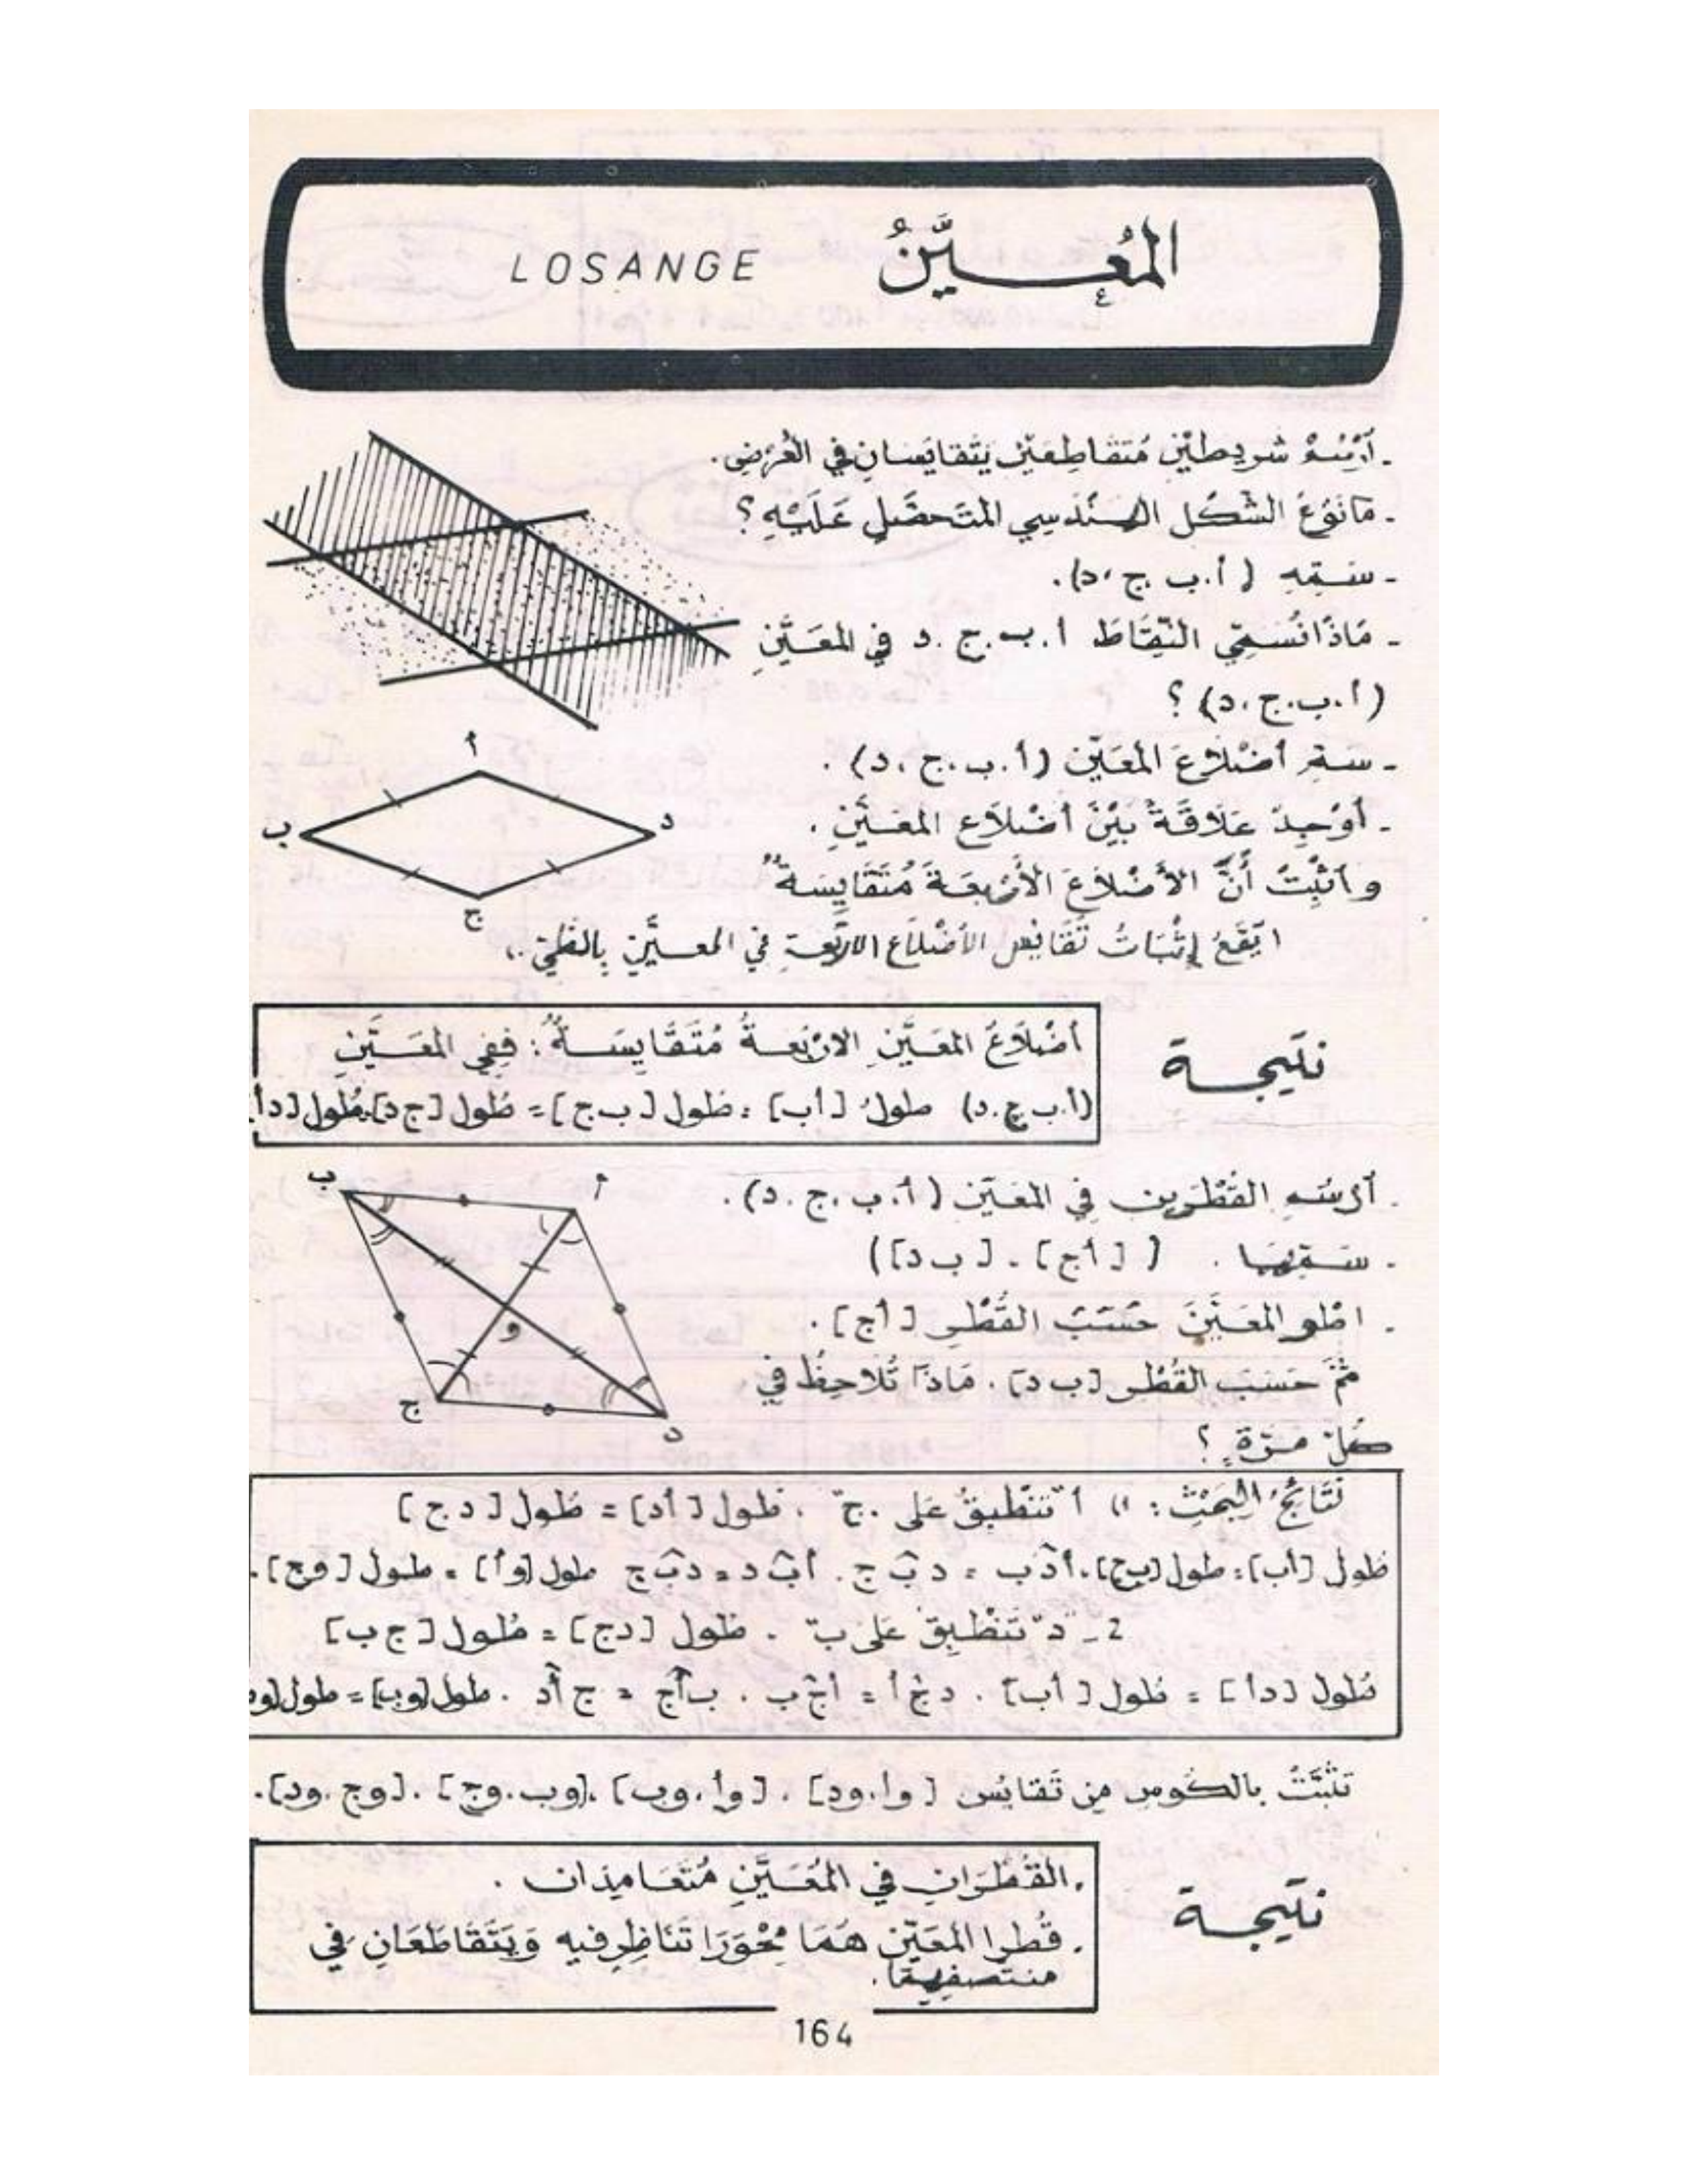 المُعَيَّنُ LOSANGE
- أرْسُمُ شريطيْن مُتقاطِعَيْن يَتَقايَسَانِ في العُرْضِ.
- مَا نَوْعُ الشَّكْل الهَنْدَسِي المتَحصَّلِ عَلَيْهِ ؟
- سَمِّهِ ( أ.ب.ج.د).
- مَاذَا نُسَمِّي النِّقَاطَ أ.ب.ج.د في المعَيَّنِ
(أ.ب.ج.د) ؟
أ
- سَمِّ أضْلاَعَ المعَيّن (أ.ب.ج.د) .
ب
د
- أوْجِدْ عَلَاقَةً بَيْنَ أضْلاَعِ المعَيَّنِ .
و أثْبِتْ أنَّ الأضْلاَعَ الأرْبعَةَ مُتَقَايِسَةٌ"
ج
( يَقَعُ إثْبَاتُ تَقَايُسِ الأضْلاَعِ الأربَعةِ في المعَيَّنِ بِالطَّيّ ..
نتيجة
أضْلاَعُ المعَيَّنِ الارْبَعةُ مُتَقَايِسَةٌ : ففِي المعَيَّنِ
(أ.ب.ج.د) طولُ [أب] = طول [ب ج] = طول [ج د] = طول [د أ]
ب
أ
. أرسُم القُطْرَين في المعَيّن ( أ.ب.ج.د).
- سَمِّهِمَا . ( [أج] . [ب د])
. اطْوِ المعَيَّنَ حَسَبَ القُطْرِ [أج] .
و
ثمّ حَسَبَ القُطْرِ [ب د] . مَاذَا تُلَاحِظُ في
ج
د
كُلّ مَرّةٍ ؟
نَتَائِجُ البَحْثِ : 1) أ "تَنْطَبِقُ عَلى .ج" . طول [أد] = طول [د ج]
طول [أب] = طول [ب ج]. أدَب = دبَ ج . أبَ د = دبَ ج طول [و أ] = طول [و ج].
2 - د "تَنْطَبِقُ عَلى ب" . طول [دج] = طول [ج ب]
طول [دأ] = طول [أب] . دجَ أ = أجَ ب . بأَج = ج أَد . طول [وب] = طول [ود
تثَبَّتْ بالكُوسِ مِن تَقايُس [وأ.ود] . [وأ.وب] .[وب.وج] . [وج.ود].
نتيجة
. القُطْرَانِ في المُعَيَّنِ مُتَعَامِدَان .
. قُطرا المعَيّن هُمَا مِحْوَرَا تَنَاظُرٍ فيه وَيَتَقَاطَعَانِ في
منتصَفِيْهِمَا.
164